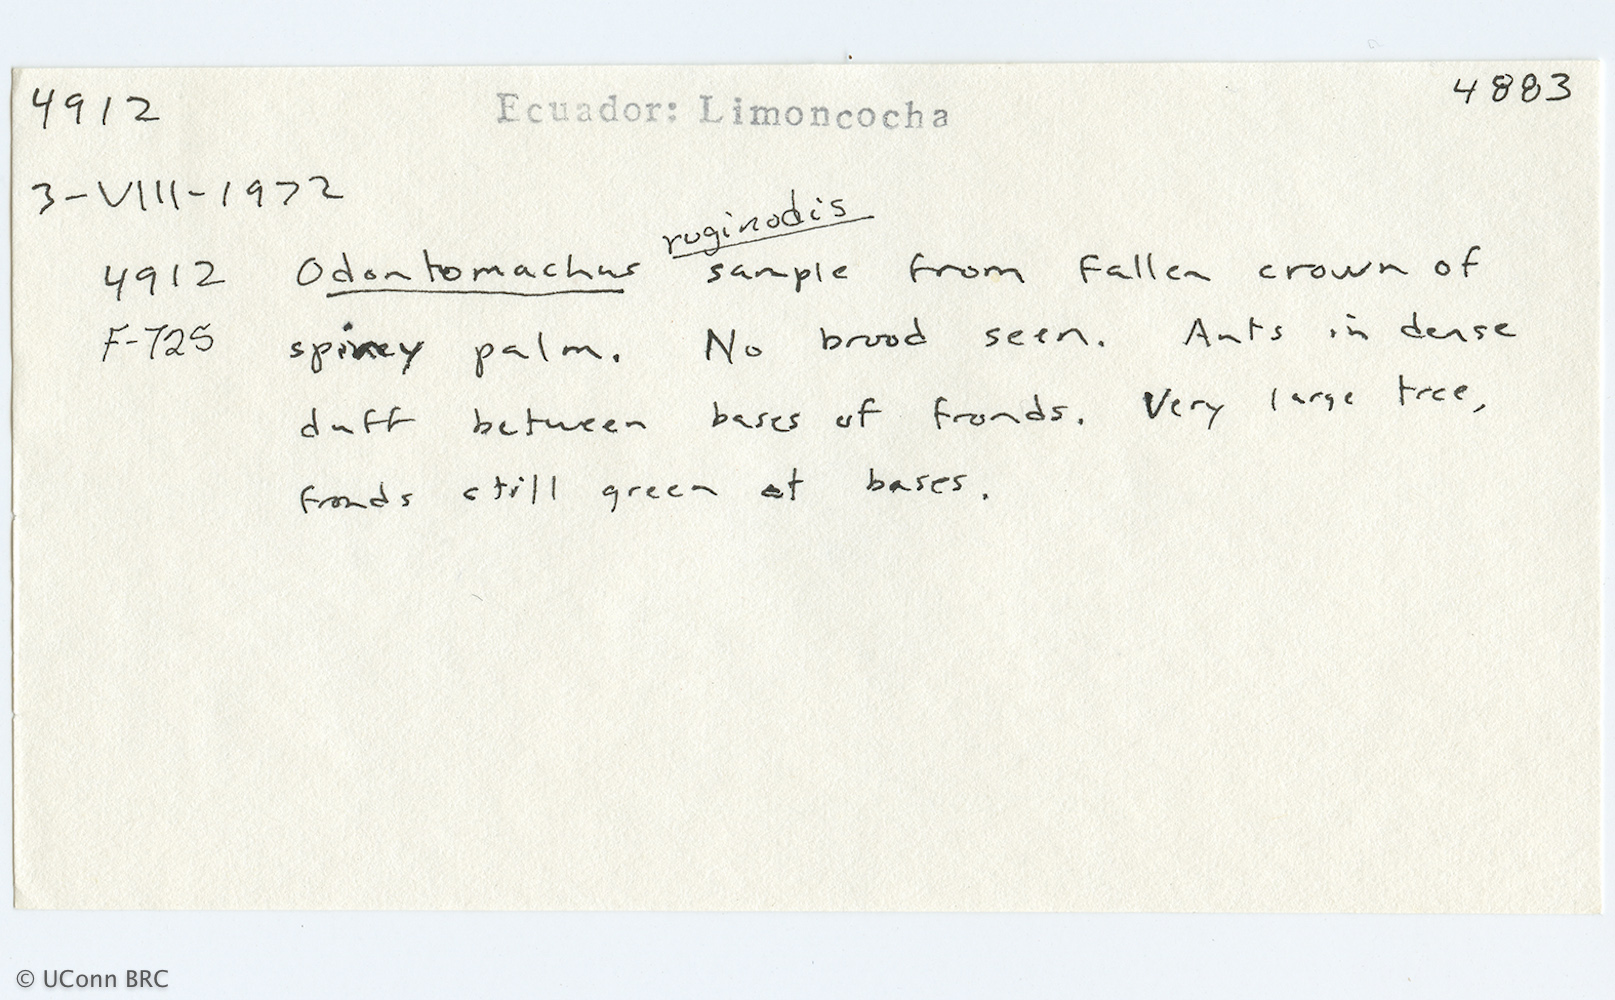 4912 Ecuador: Limoncocha 4883
3-VIII-1972
ruginodis
4912 Odontomachus sample from fallen crown of
F-725 spiney palm. No brood seen. Ants in dense
duff between bases of fronds. Very large tree,
fronds still green at bases.
© UConn BRC